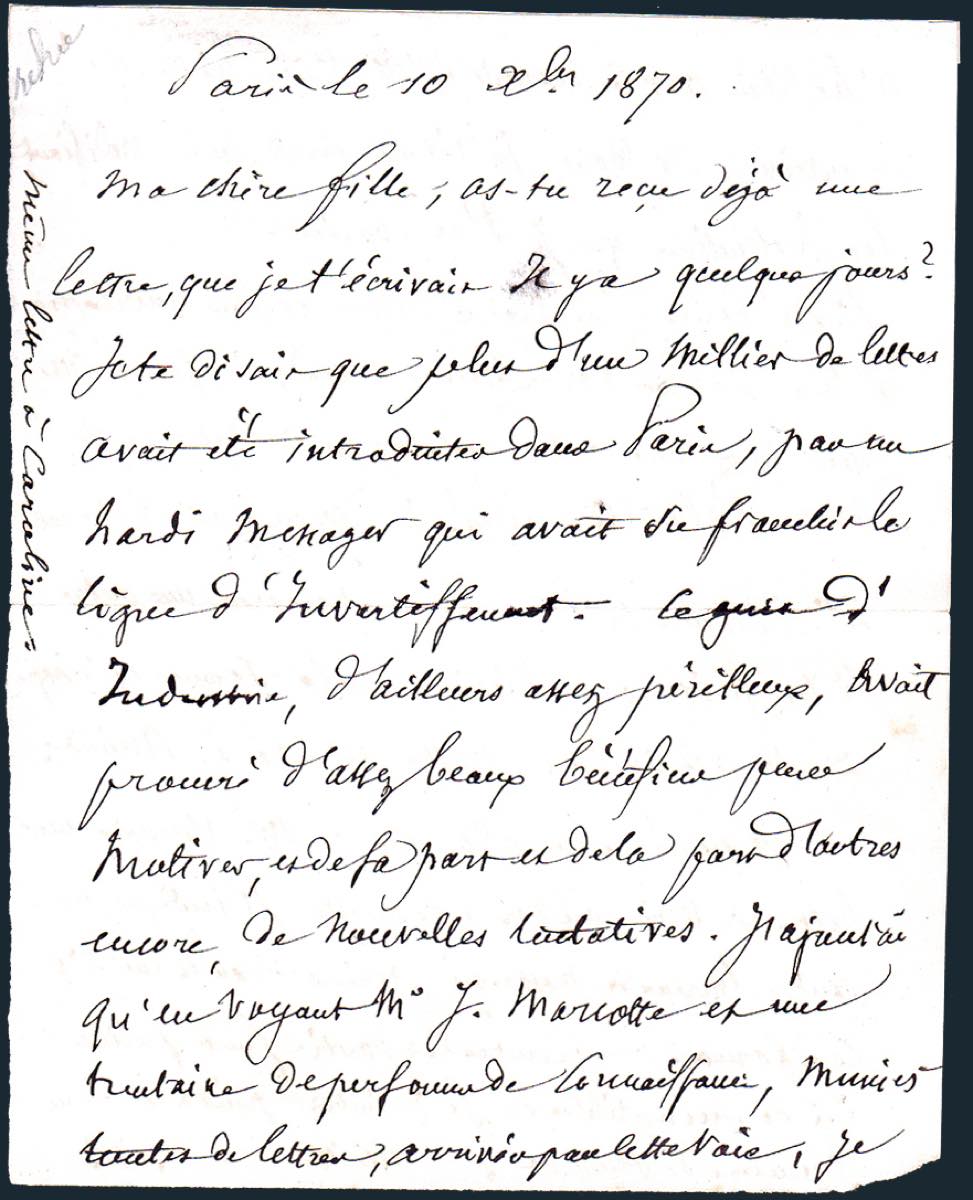 Paris le 10 Xbr 1870.
Ma chère fille, as-tu reçu déjà une
lettre, que je t'écrivais Il y a quelques jours?
Je te disais que plus d'un Millier de lettres
avait été introduites dans Paris, par un
hardi Messager qui avait su franchir la
ligne d'Investissement. Ce genre d'
Industrie, d'ailleurs assez périlleux, avait
procuré d'assez beaux bénéfices pour
Motiver, et de sa part et de la part d'autres
encore, de nouvelles tentatives. J'ajoutais
qu'en voyant Mr J. Marcotte et une
trentaine de personnes de Connaissance, Munies
toutes de lettres, arrivées par cette voie, je
même lettre à Caroline